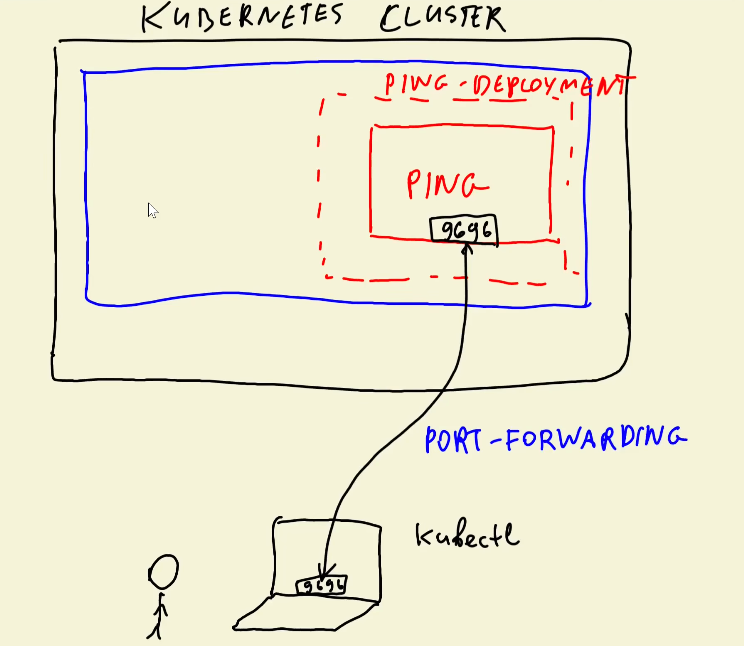 KUBERNETES CLUSTER
PING-DEPLOYMENT
PING
9696
PORT-FORWARDING
Kubectl
9696